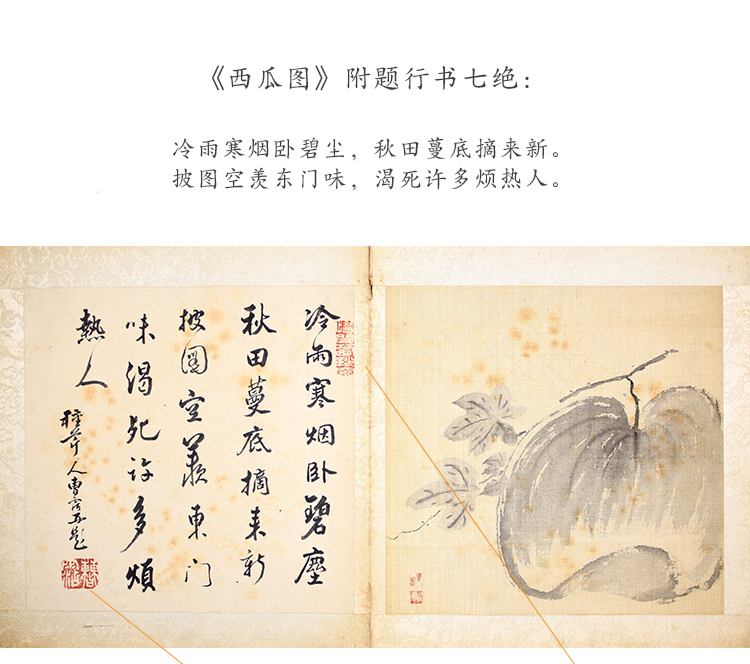 《西瓜图》附题行书七绝：
冷雨寒烟卧碧尘，秋田蔓底摘来新。
披图空羡东门味，渴死许多烦热人。
冷雨寒烟卧碧塵
秋田蔓底摘来新
披圖空羡東门
味渴死许多煩
熱人
種芹人曹霑并题